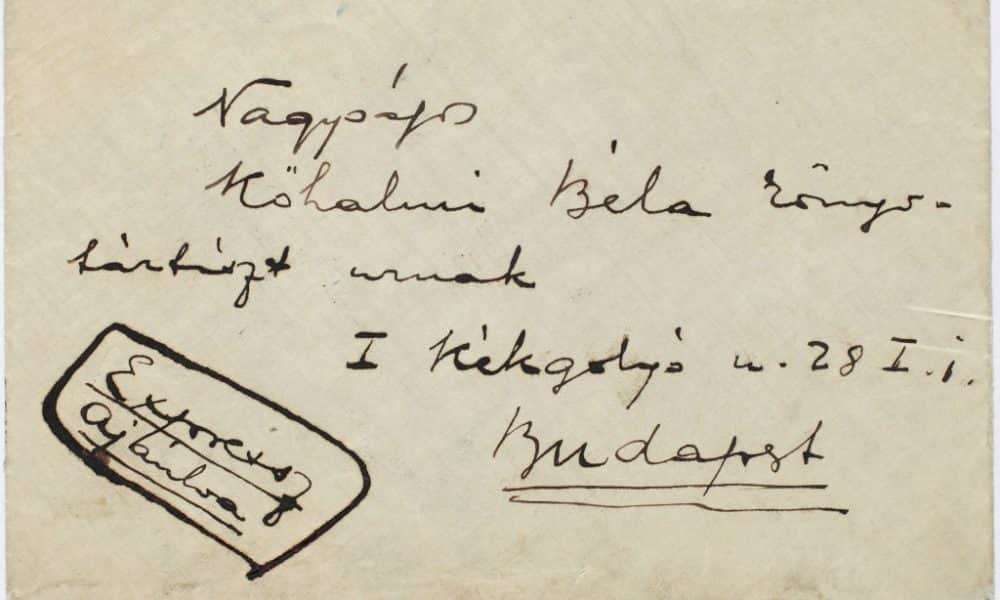 Nagyságos
Kőhalmi Béla könyv-
tártiszt urnak
I Kékgolyó u. 28 I. i.
Budapest
Expressz
ajánlva